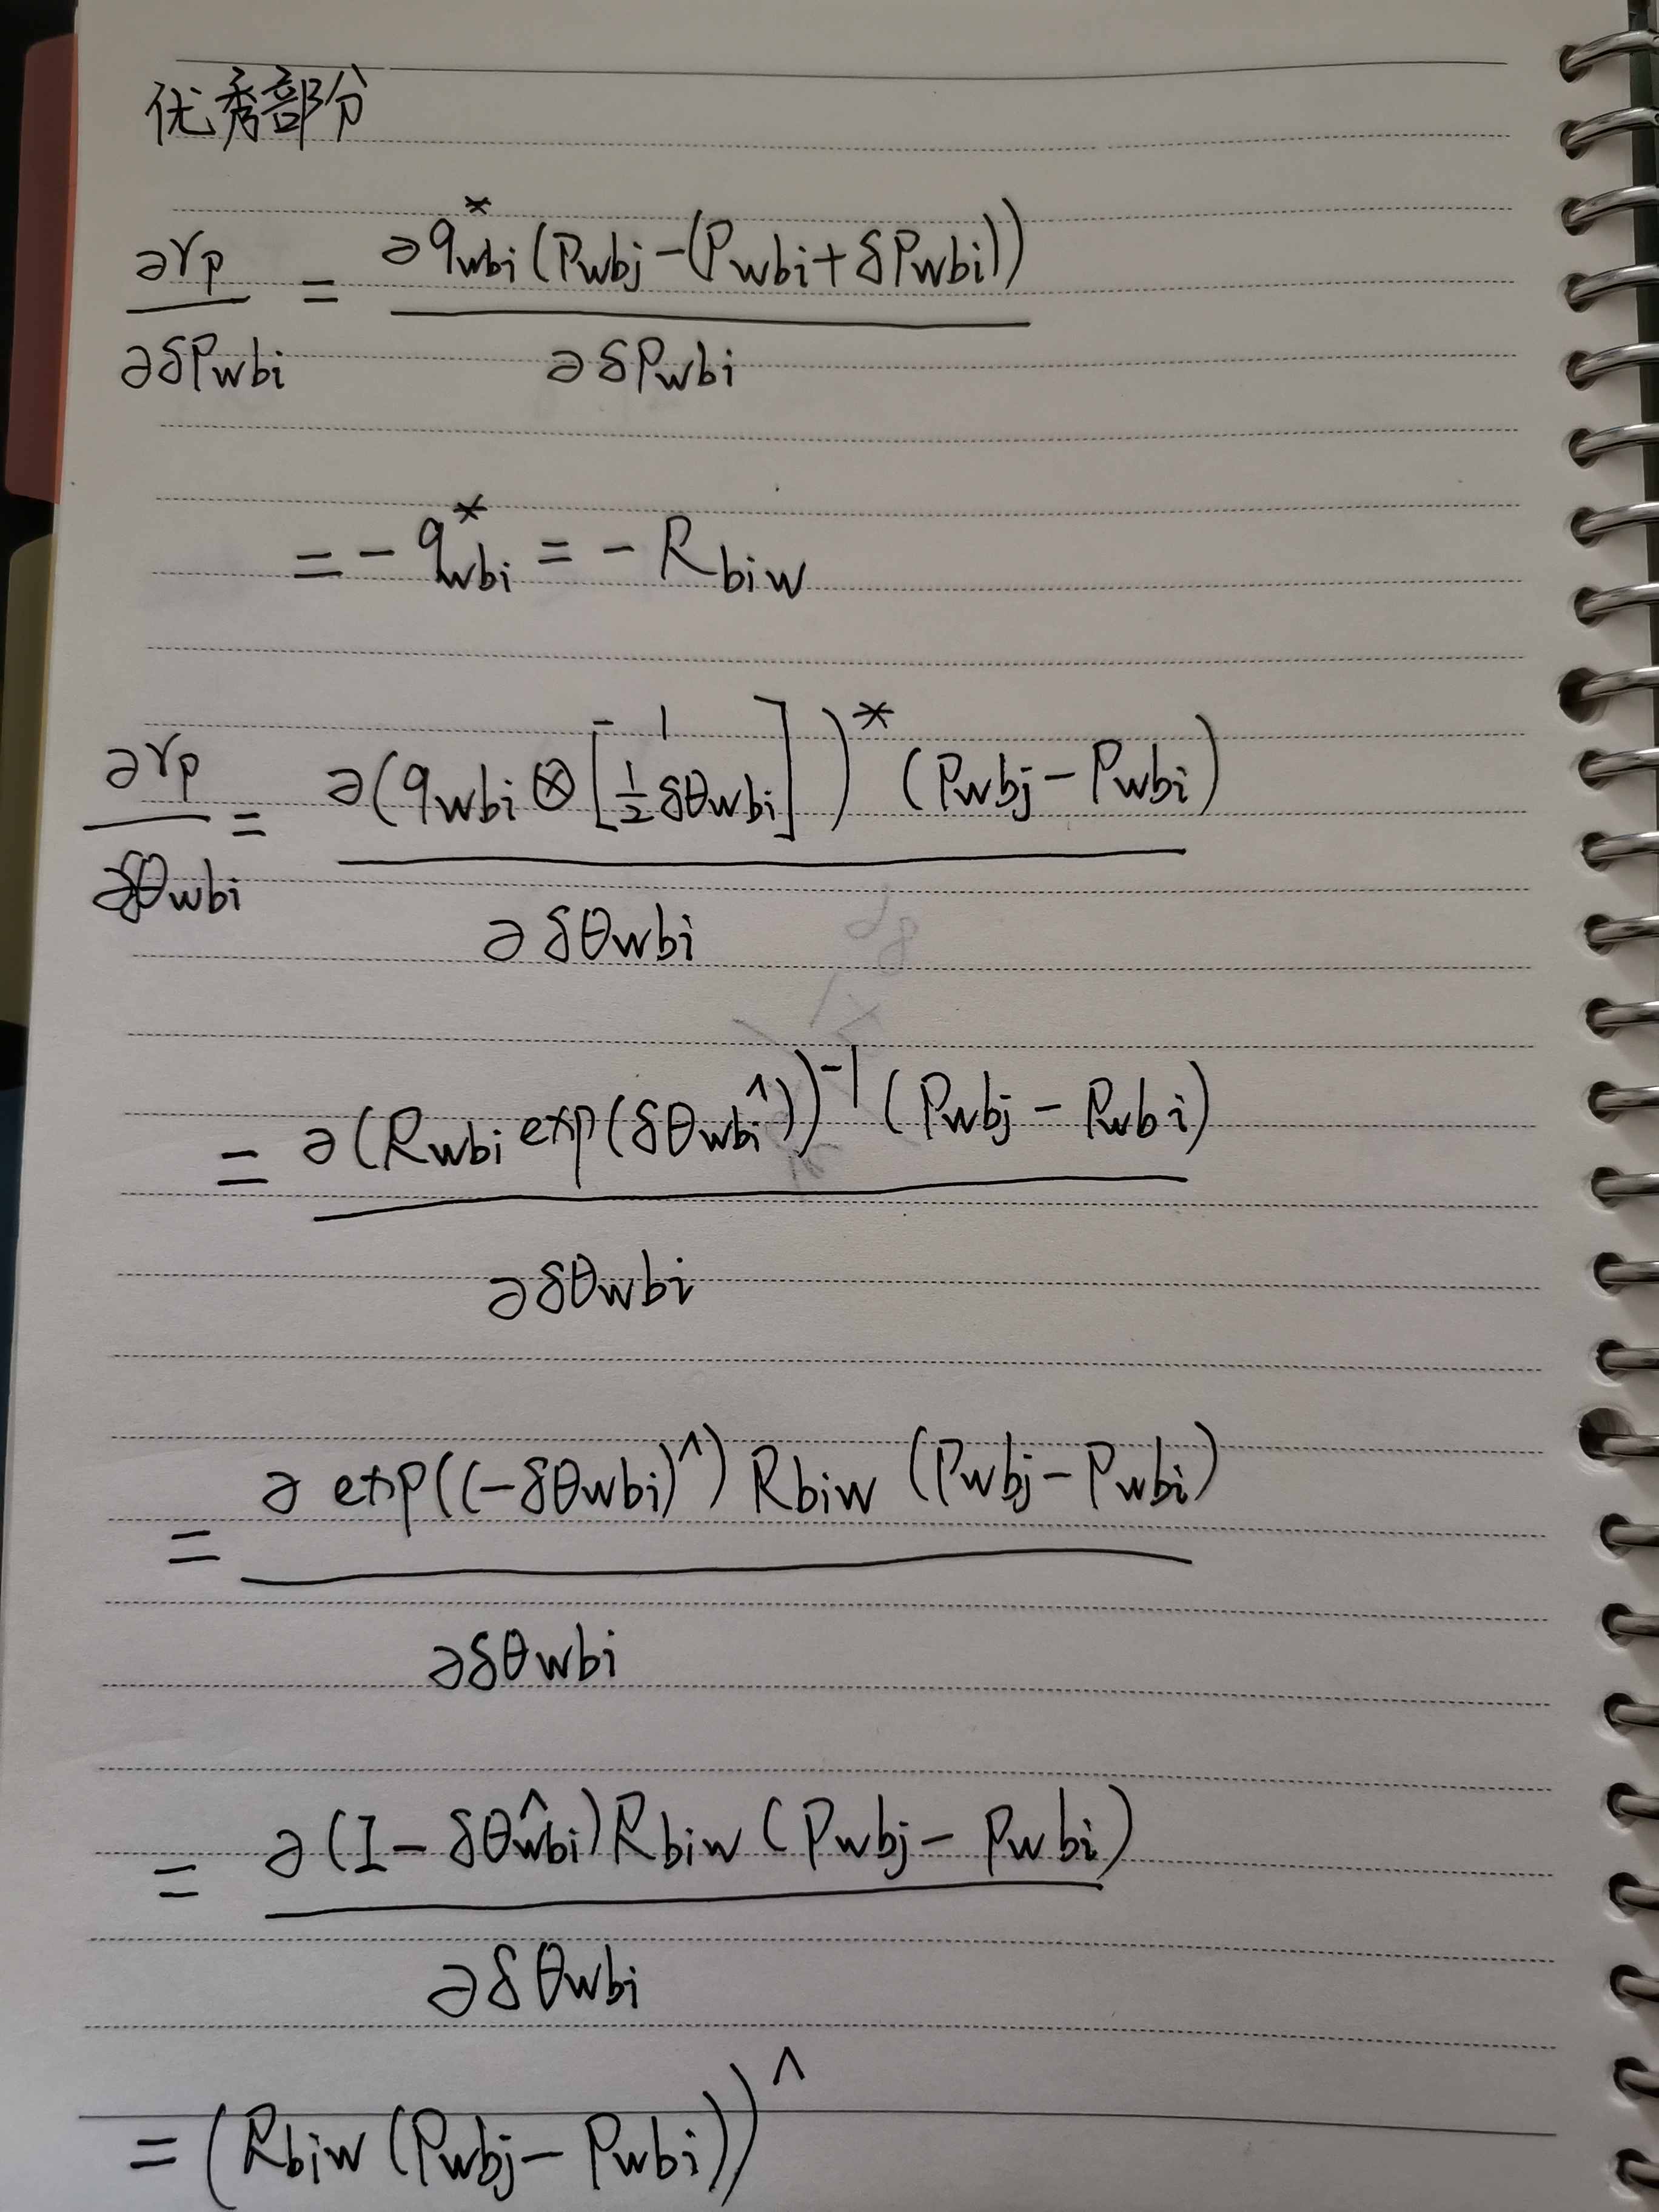 优秀部分
∂rp/∂δPwbi = ∂q*wbi(Pwbj-(Pwbi+δPwbi))/∂δPwbi
= -q*wbi = -Rbiw
∂rp/∂δθwbi = ∂(qwbi⊗[1 ½δθwbi])*(Pwbj-Pwbi)/∂δθwbi
= ∂(Rwbi exp(δθwbi^))⁻¹(Pwbj-Pwbi)/∂δθwbi
= ∂exp((-δθwbi)^)Rbiw(Pwbj-Pwbi)/∂δθwbi
= ∂(I-δθ^wbi)Rbiw(Pwbj-Pwbi)/∂δθwbi
= (Rbiw(Pwbj-Pwbi))^